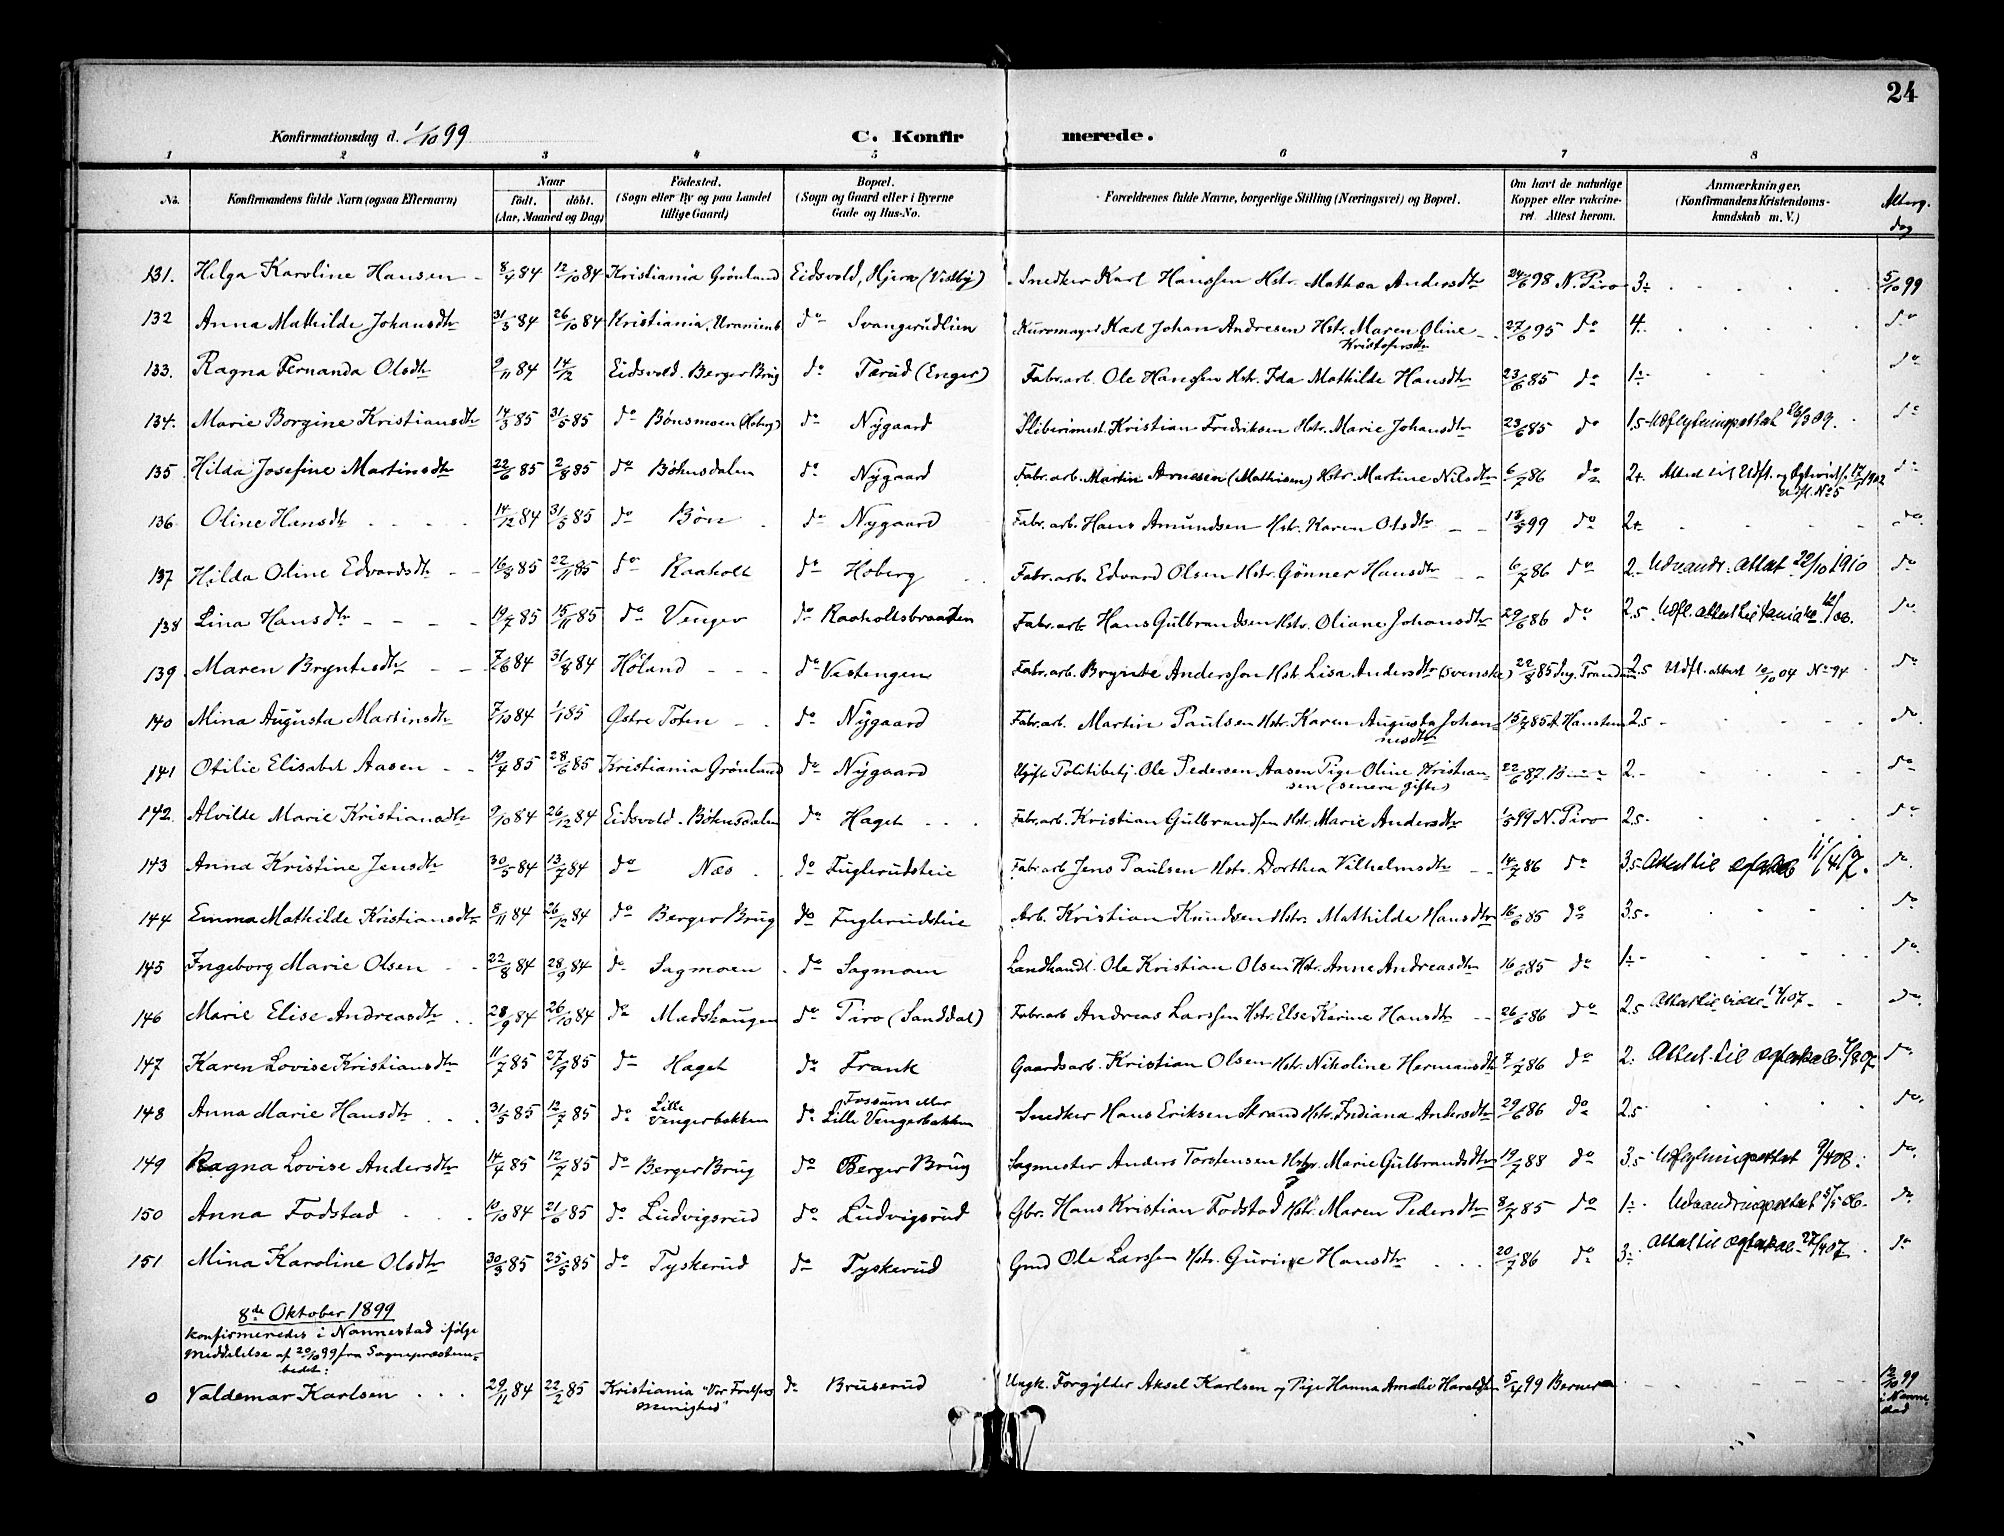 24
Konfirmationsdag d. 1/10 99
C. Konfir merede.
1 2 3 4 5 6 7 8
No. Konfirmandens fulde Navn (ogsaa Efternavn) Naar født. døbt. (Aar, Maaned og Dag) Fødested. (Sogn eller By og paa Landet tillige Gaard) Bopæl. (Sogn og Gaard eller i Byerne Gade og Hus-No. Forældrenes fulde Navne, borgerlige Stilling (Næringsvei) og Bopæl. Om havt de naturlige Kopper eller vakcineret. Attest herom. Anmærkninger. (Konfirmandens Kristendomskundskab m. V.) Altergdag
131. Helga Karoline Hansen 8/4 84 12/10 84 Kristiania Grønland Eidsvold, Hjera (Vistby) Snedker Karl Hanssen Hstr. Mathea Andersdtr 24/6 98 N. Piro 3 5/10 99
132 Anna Mathilde Johansdtr 31/3 84 26/10 84 Kristiania, Uranienb do Svangerudlien Kurvmager Karl Johan Andresen Hstr. Maren Oline Kristofersdtr 27/6 95 do 4. do
133. Ragna Fernanda Olsdtr 9/11 84 14/12 Eidsvold. Berger Brug do Tærud (Enger) Fabr. arb. Ole Hanssen Hstr. Ida Mathilde Hansdtr 23/6 85 do 1 do
134. Marie Borgine Kristiansdtr 14/3 85 31/5 85 do Bönsmoen (Hoberg) do Nygaard Sliberimest. Kristian Fredriksen Hstr. Marie Johansdtr 23/6 85 do 1.5 Udflytningsattest 26/3 09. do
135 Hilda Josefine Martinsdtr 22/6 85 2/8 85 do Böhnsdalen do Nygaard Fabr. arb. Martin Arnesen (Mathisen) Hstr Martine Nilsdtr 6/7 86 do 2 Attest til Udfl. og 17/7 1902 Udfl. No 5 do
136. Oline Hansdtr 14/12 84 31/5 85 do Bön do Nygaard Fabr. arb. Hans Amundsen Hstr. Karen Olsdtr 18/5 99 do 2 do
137 Hilda Oline Edvardsdtr 16/8 85 22/11 85 do Raaholt do Hoberg Fabr. arb. Edvard Olsen Hstr. Gönner Hansdtr 6/7 86 do 2. Udvandr. Attest 22/10 1910 do
138 Lina Hansdtr 19/7 85 15/11 85 do Venger do Raaholtsbraaten Fabr. arb. Hans Gulbrandsen Hstr. Oliane Johansdtr 29/6 86 do 2.5 Udfl. attest til 06. do
139 Maren Bryntesdtr 7/6 84 31/8 84 Höland do Vestengen Fabr. arb. Brynte Anderssen Hstr. Lisa Andersdtr (svenske) 22/8 85 Ing. Trandum 2.5 Udfl. attest 10/10 04 No 94 do
140 Mina Augusta Martinsdtr 7/10 84 1/1 85 Østre Toten do Nygaard Fabr. arb. Martin Paulsen Hstr. Karen Augusta Johannesdtr 15/7 85 A Hansteen 2.5 do
141 Otilie Elisabet Aasen 19/4 85 28/6 85 Kristiania Grønland do Nygaard Ugift Politibetj. Ole Pedersen Aasen Pige Oline Kristiansen (senere gifte) 22/6 87. 2. do
142. Alvilde Marie Kristiansdtr 9/10 84 26/12 84 Eidsvold. Böhnsdalen do Haget Fabr. arb. Kristian Gulbrandsen Hstr. Marie Andersdtr 1/5 99 N. Piro 2.5 do
143 Anna Kristine Jensdtr 30/5 84 13/7 84 do Næs do Fuglerudsteie Fabr. arb Jens Paulsen Hstr. Dorthea Vilhelmsdtr 14/7 86 do 3.5 Attest til ægteskab 11/4 07. do
144 Emma Mathilde Kristiansdtr 8/11 84 26/12 84 do Berger Brug do Fuglerudsteie Arb. Kristian Knudsen Hstr. Mathilde Hansdtr 16/6 85 do 3.5 do
145 Ingeborg Marie Olsen 22/8 84 28/9 84 do Sagmoen do Sagmoen Landhandl. Ole Kristian Olsen Hstr. Anne Andreasdtr 16/6 85 do 1 do
146 Marie Elise Andreasdtr 28/9 84 26/10 84 do Mædshaugen do Piro (Sanddal) Fabr. arb Andreas Larssen Hstr. Else Karine Hansdtr 26/6 86 do 2.5 Attest til 07. do
147 Karen Lovise Kristiansdtr 11/7 85 27/9 85 do Haget do Frank Gaardsarb. Kristian Olsen Hstr. Nikoline Hermansdtr 7/7 86 do 2. Attest til ægteskab 7/8 07. do
148 Anna Marie Hansdtr 31/5 85 12/7 85 do Lille Vengerbakken do Fossum eller Lille Vengerbakken Snedker Hans Eriksen Strand Hstr. Indiana Andersdtr 29/6 86 do 2.5 do
149 Ragna Lovise Andersdtr 14/7 85 12/7 85 do Berger Brug do Berger Brug Sagmester Anders Torstensen Hstr. Marie Gulbrandsdtr 19/7 88 do 3.5 Udflytningsattest 9/4 08. do
150 Anna Fodstad 10/10 84 21/6 85 do Ludvigsrud do Ludvigsrud Gbr. Hans Kristian Fodstad Hstr. Maren Pedersdtr 8/7 85 do 1 Udvandringsattest 5/5 06. do
151 Mina Karoline Olsdtr 30/3 85 25/5 85 do Tyskerud do Tyskerud Gmd Ole Larssen Hstr. Gurine Hansdtr 20/7 86 do 3 Attest til ægteskab 27/4 07. do
8de Oktober 1899
konfirmeredes i Nannestad ifølge
meddelelse af 20/10 99 fra Sognepræstem-
bedet:
0 Valdemar Karlsen 29/11 84 22/2 85 Kristiania "Vor Frelsers menighed" do Bruserud Ungk. Forgylder Aksel Karlsen og Pige Hanna Amalie Haraldsen 5/4 99 Berner 12/10 99 i Nannestad